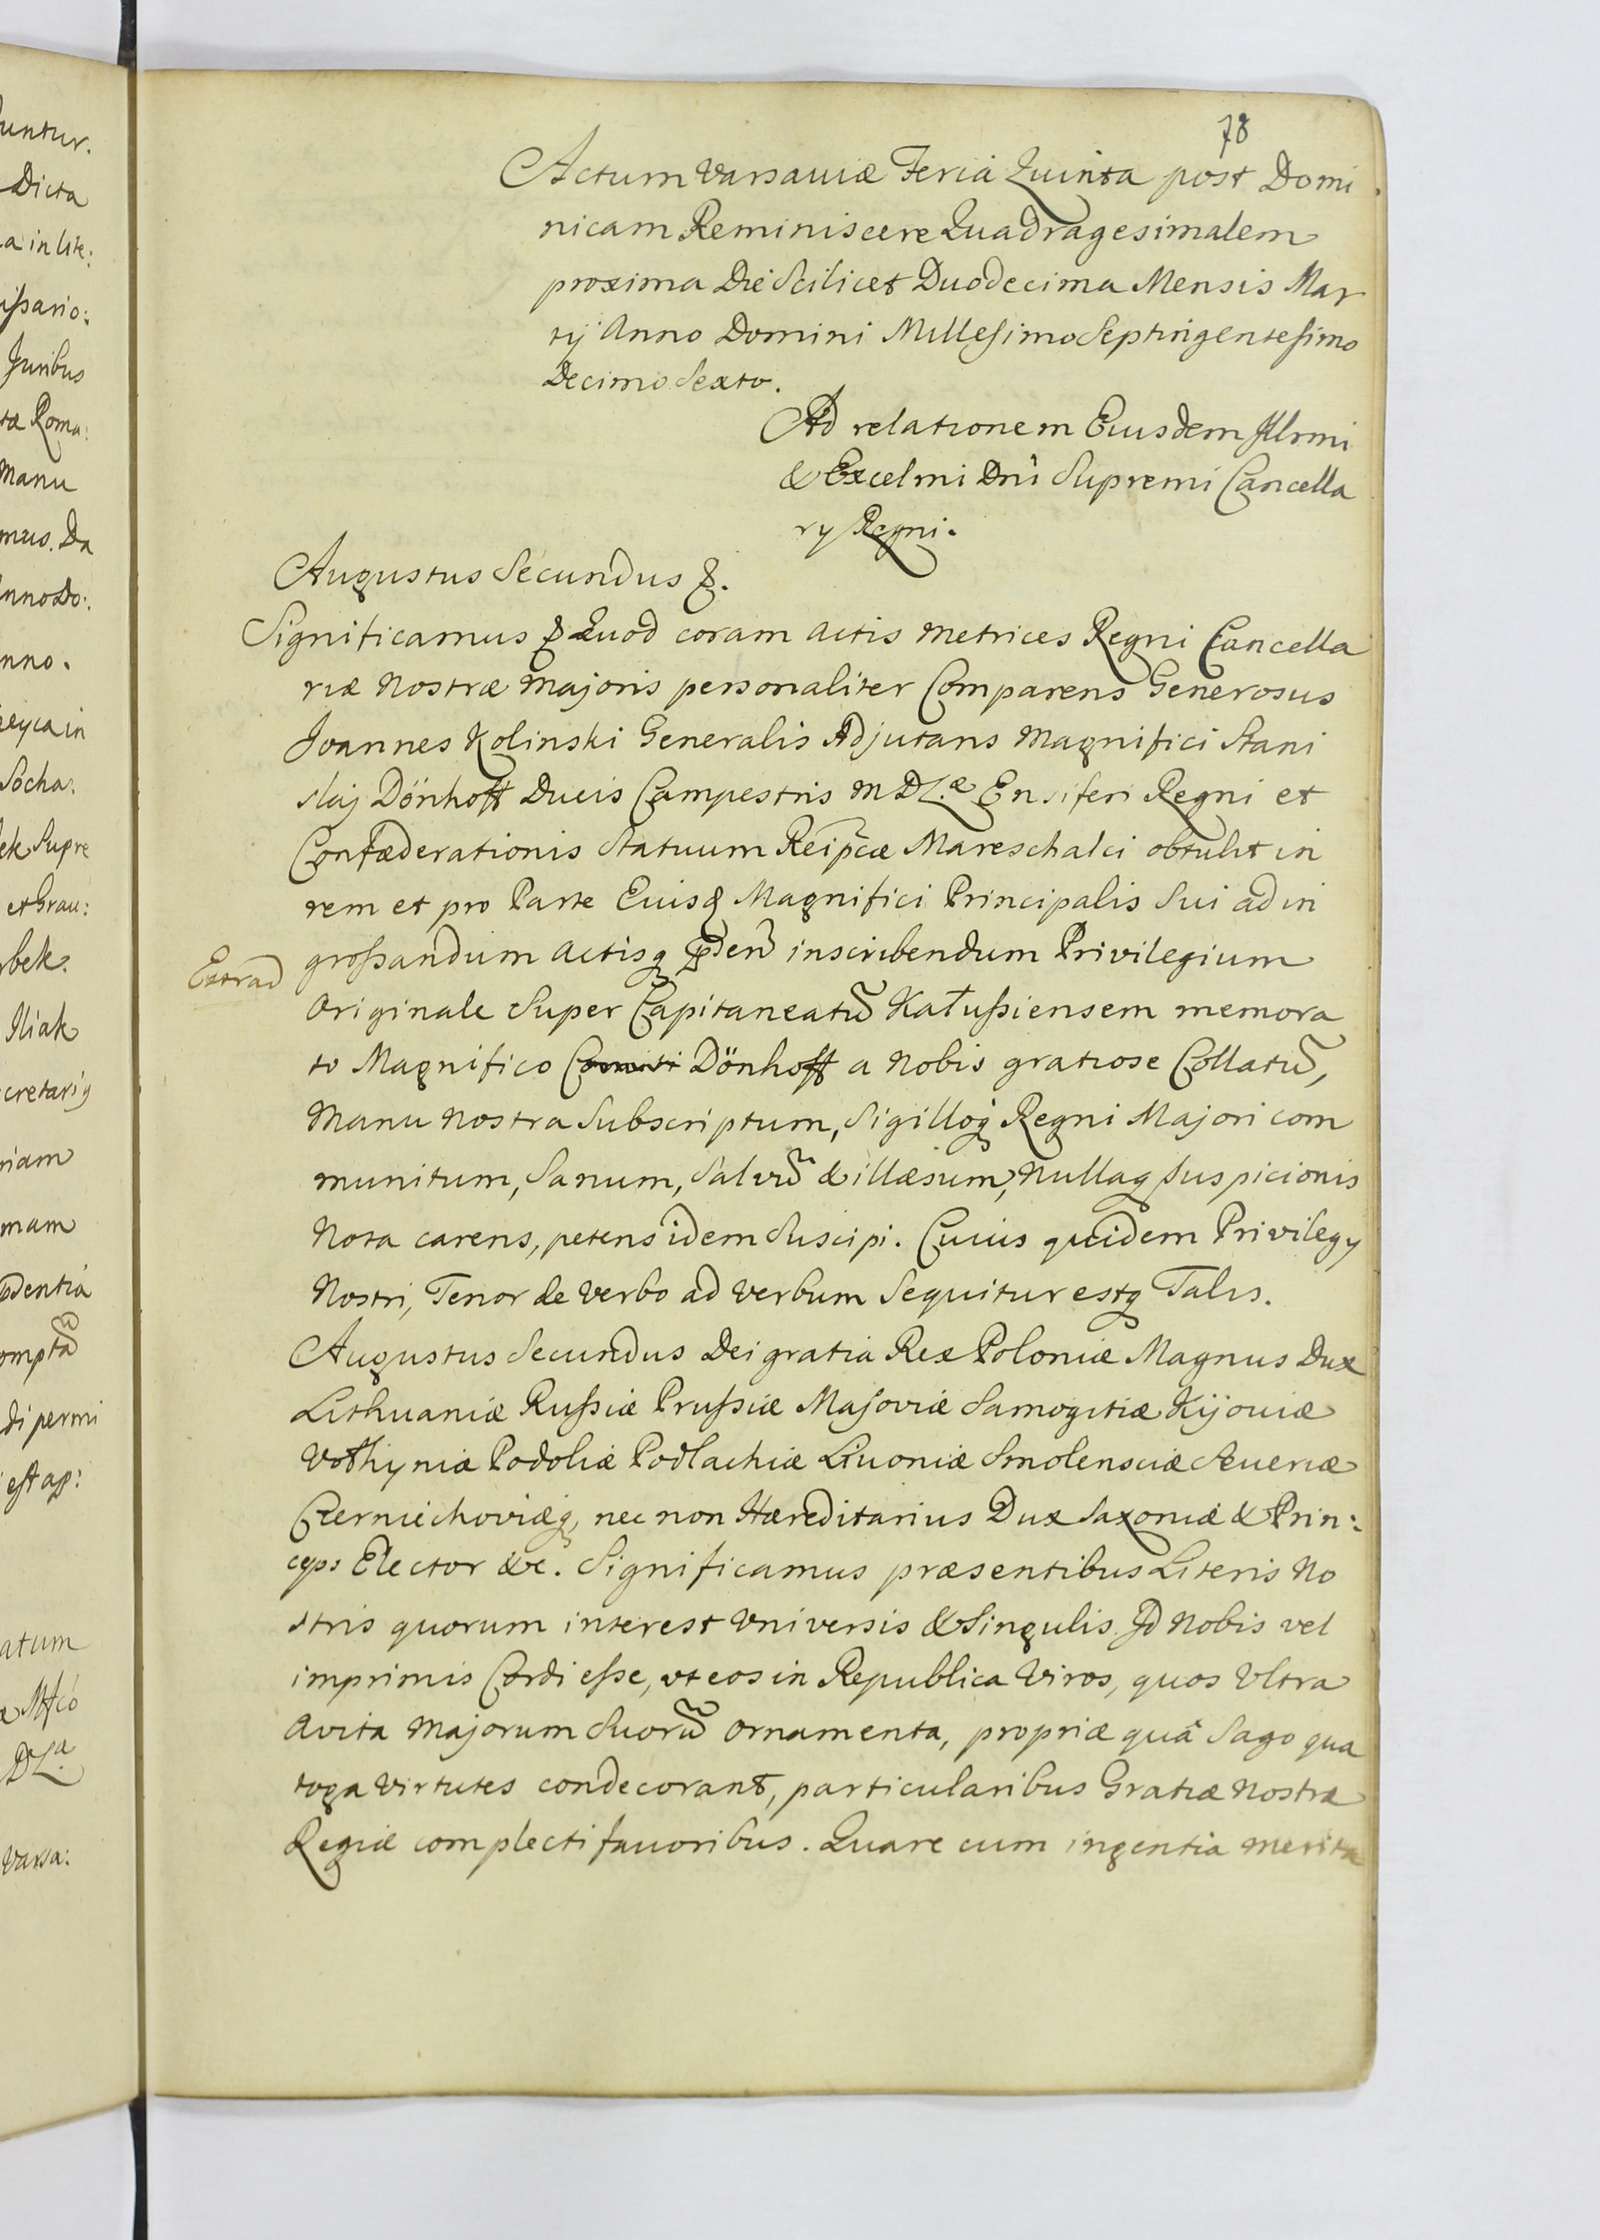 78
Actum Varsaviæ Feria Quinta post Domi
nicam Reminiscere Quadragesimalem
proxima Die Scilicet Duodecima Mensis Mar
tij Anno Domini Millesimo Septingentesimo
Decimo Sexto.
Ad relationem Eiusdem Illrmi
& Excelmi Dni Supremi Cancella
ry Regni.
Augustus Secundus &.
Significamus & Quod coram Actis Metrices Regni Cancella
riæ Nostræ Majoris personaliter Comparens Generosus
Joannes Kolinski Generalis Adjutans Magnifici Stani
slai Dönhoff Ducis Campestris M D L.æ Ensiferi Regni et
Confæderationis Statuum Reipcæ Mareschalci obtulit in
rem et pro Parte Eiusd Magnifici Principalis Sui ad in
Extrad
grossandum Actisq pnden inscribendum Privilegium
Originale Super Capitaneatu Kałussiensem memora
to Magnifico Comiti Dönhoff a Nobis gratiose Collatu,
Manu Nostra Subscriptum, Sigilloq Regni Majori com
munitum, Sanum, Salvu & illæsum, Nullaq Suspicionis
Nota carens, petens idem Suscipi. Cuius quidem Privilegy
Nostri, Tenor de verbo ad verbum Sequitur estq Talis.
Augustus Secundus Dei gratia Rex Poloniæ Magnus Dux
Lithuaniæ Russiæ Prussiæ Masoviæ Samogitiæ Kijoviæ
Vołhyniæ Podoliæ Podlachiæ Livoniæ Smolensciæ Seueriæ
Czerniechoviæq, nec non Hæreditarius Dux Saxoniæ & Prin:
ceps Elector &c. Significamus præsentibus Literis No
stris quorum interest Vniversis & Singulis. Id Nobis vel
imprimis Cordi esse, vt eos in Republica Viros, quos Vltra
Avita Majorum Suoru ornamenta, propriæ quâ Sago qua
toga Virtutes condecorant, particularibus Gratiæ Nostræ
Regiæ complecti fauoribus. Quare cum ingentia merita